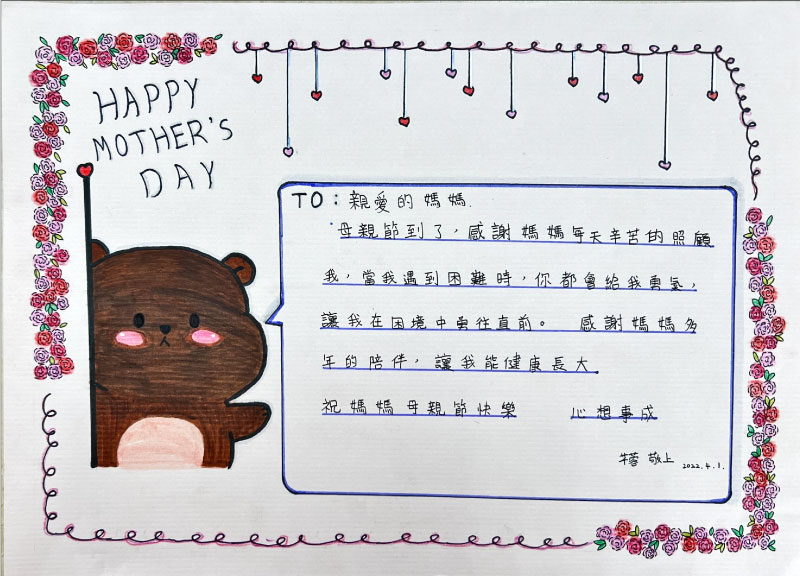 HAPPY
MOTHER'S
DAY
TO：親愛的媽媽.
母親節到了，感謝媽媽每天辛苦的照顧
我，當我遇到困難時，你都會給我勇氣，
讓我在困境中勇往直前。 感謝媽媽多
年的陪伴，讓我能健康長大.
祝媽媽母親節快樂 心想事成
敬上 2022.4.1.